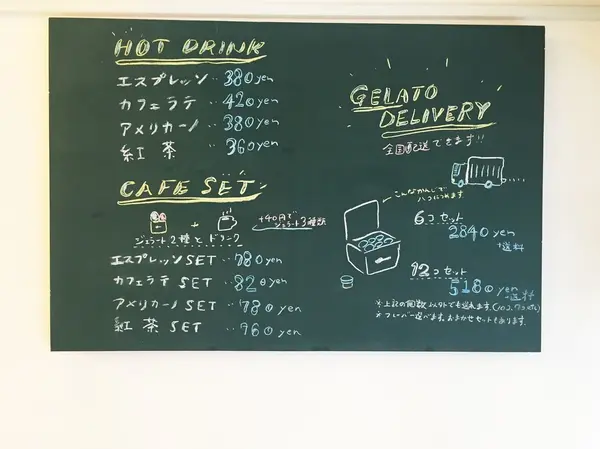 HOT DRINK
エスプレッソ ‥ 380yen
カフェラテ ‥ 420yen
アメリカーノ ‥ 380yen
紅茶 ‥ 360yen
CAFE SET
+
+40円でジェラート3種類
ジェラート2種と、ドリンク
エスプレッソSET ‥ 780yen
カフェラテSET ‥ 820yen
アメリカーノSET ‥ 780yen
紅茶SET ‥ 960yen
GELATO
DELIVERY
全国配送できます!!
こんなかんじで
ハコに入れます
6コセット
2840yen
+送料
12コセット
5180yen
+送料
※上記の個数以外でも送れます。
※フレーバー選べます。おまかせセットもあります。